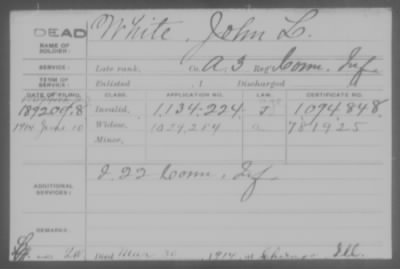 DEAD White, John L.
NAME OF SOLDIER:
SERVICE: Late rank, Co. A, 3 Reg't Conn. Inf.
TERM OF SERVICE: Enlisted , 1 Discharged , 1
DATE OF FILING. CLASS. APPLICATION NO. LAW. CERTIFICATE NO.
1892 Invalid, 1,134,224 J 1094,848
1914 June 10 Widow, 1029,254 781925
Minor,
ADDITIONAL SERVICES: I. 22 Conn. Inf.
REMARKS:
Died 1914, at Ill.